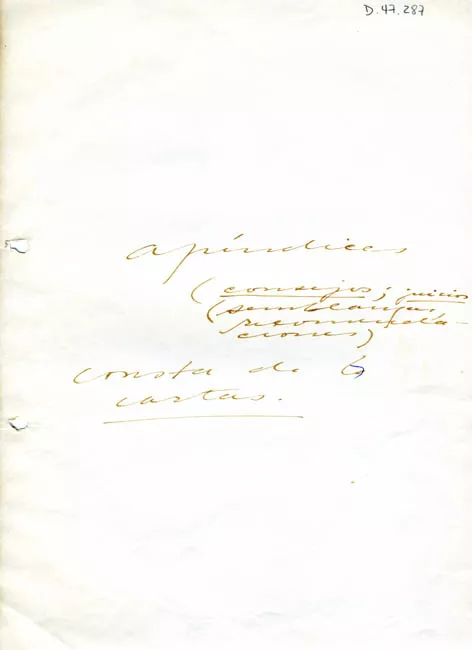 D.47.287
apéndices
(consejos; juicios
(semblanzas,
ciones)
consta de 6
cartas.